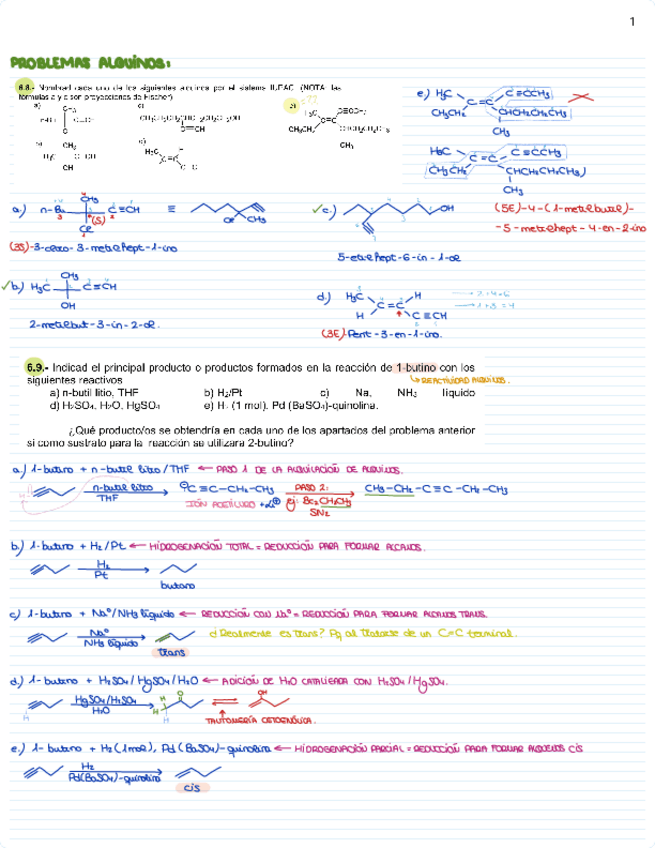 1
PROBLEMAS ALQUINOS:
6.8.- Nombrad cada uno de los siguientes alquinos por el sistema IUPAC. (NOTA: las
fórmulas a y b son proyecciones de Fischer)
a) n-Bu CH₃ C≡CH Cl (S) ≡ Cl CH₃
(3S)-3-cloro-3-metilhept-1-ino
b) H₃C CH₃ C≡CH OH
2-metilbut-3-in-2-ol.
c) OH
5-etilhept-6-in-1-ol
d) H₃C C=C H H C≡CH
(3E)-Pent-3-en-1-ino.
e) H₃C C≡CCH₃
C=C
CH₃CH₂ CHCH₂CH₂CH₃
CH₃
H₃C C≡CCH₃
C=C
CH₃CH₂ CHCH₂CH₂CH₃
CH₃
(5E)-4-(1-metilbutil)-
-5-metilhept-4-en-2-ino
6.9.- Indicad el principal producto o productos formados en la reacción de 1-butino con los
siguientes reactivos
↳ REACTIVIDAD ALQUINOS.
a) n-butil litio, THF b) H₂/Pt c) Na, NH₃ líquido
d) H₂SO₄, H₂O, HgSO₄ e) H₂ (1 mol), Pd (BaSO₄)-quinolina.
¿Qué producto/os se obtendría en cada uno de los apartados del problema anterior
si como sustrato para la reacción se utilizara 2-butino?
a) 1-butino + n-butil litio/THF ← PASO 1 DE LA ALQUILACIÓN DE ALQUINOS.
n-butil litio
THF
⊖C≡C-CH₂-CH₃
IÓN ACETILURO + Li⊕
PASO 2:
ej: BrCH₂CH₃
SN2
CH₃-CH₂-C≡C-CH₂-CH₃
b) 1-butino + H₂/Pt ← HIDROGENACIÓN TOTAL = REDUCCIÓN PARA FORMAR ALCANOS.
H₂
Pt
butano
c) 1-butino + Na⁰/NH₃ líquido ← REDUCCIÓN CON Na⁰ = REDUCCIÓN PARA FORMAR ALQUENOS TRANS.
Na⁰
NH₃ líquido
trans
¿Realmente es trans? Pq al tratarse de un C=C terminal.
d) 1-butino + H₂SO₄/HgSO₄/H₂O ← ADICIÓN DE H₂O CATALIZADA CON H₂SO₄/HgSO₄.
HgSO₄/H₂SO₄
H₂O
H H H O OH
TAUTOMERÍA CETOENÓLICA.
e) 1-butino + H₂ (1mol), Pd(BaSO₄)-quinolina ← HIDROGENACIÓN PARCIAL = REDUCCIÓN PARA FORMAR ALQUENOS CIS
H₂
Pd(BaSO₄)-quinolina
cis